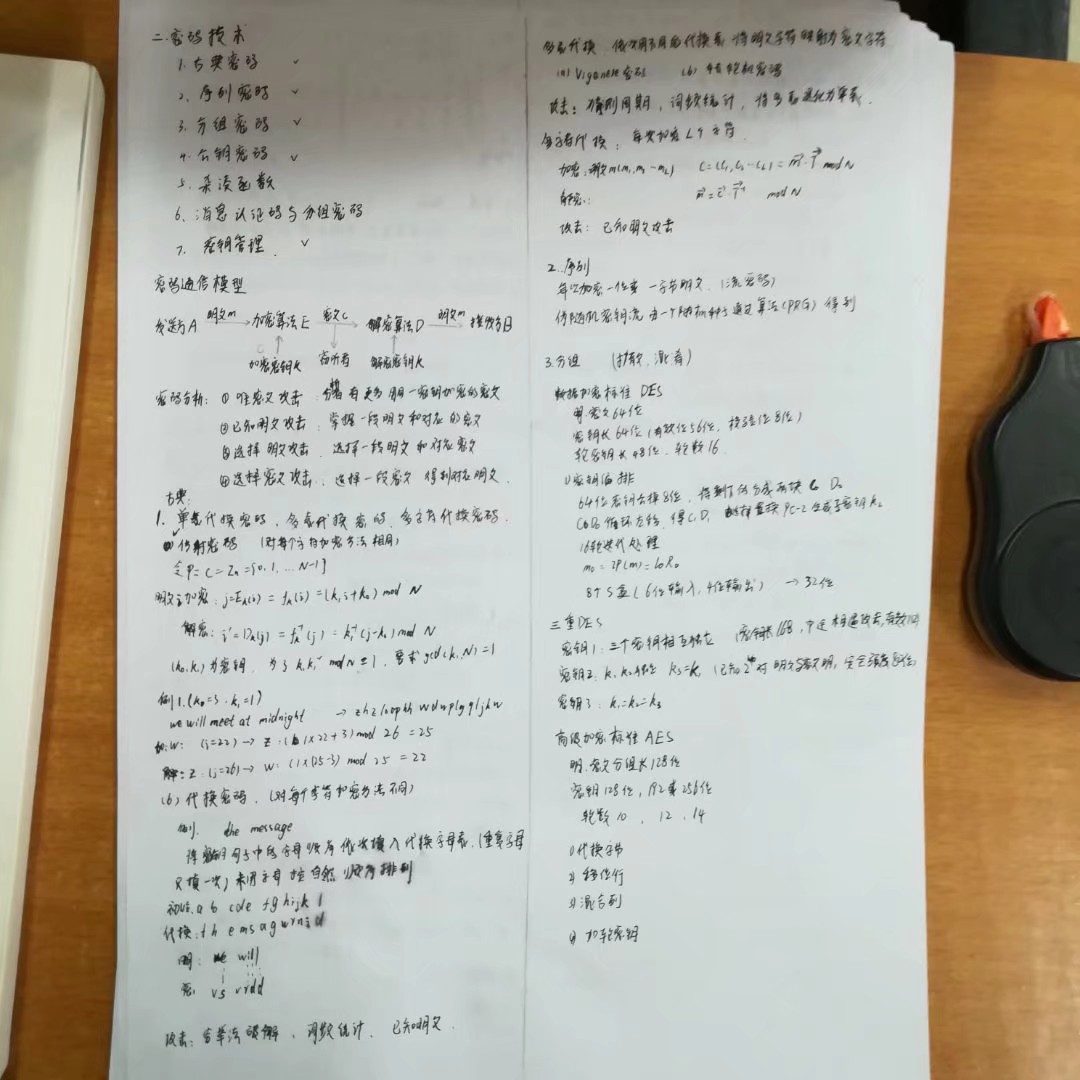 二.密码技术
1.古典密码 ✓
2.序列密码 ✓
3.分组密码 ✓
4.公钥密码 ✓
5.杂凑函数
6.消息认证码与分组密码
7.密钥管理. ✓
密码通信模型
发送方A 明文m→ 加密算法E 密文C→ 解密算法D 明文m→ 接收方B
加密密钥k 解密密钥k
密码分析: ①唯密文攻击: 有更多用同一密钥加密的密文
②已知明文攻击: 掌握一段明文和对应的密文
③选择明文攻击. 选择一段明文和对应密文
④选择密文攻击. 选择一段密文 得到对应明文.
古典:
1. 单表代换密码, 多表代换密码. 多字符代换密码.
(a) 仿射密码 (对每个字符加密方法相同)
令P=C=Zn={0.1, ...N-1}
加密: j=Ek(i)=fk(i)=(k1i+k0) mod N
解密: i=Dk(j)=fk⁻¹(j)=k1⁻¹(j-k0) mod N
(k0,k1)为密钥. k1k1⁻¹ mod N=1, 要求gcd(k1,N)=1
例1.(k0=3.k1=1)
we will meet at midnight → zhzloophhwdwplgqljkw
加:W: (i=22)→Z:(1×22+3) mod 26=25
解:Z:(j=26)→W:(1×(25-3) mod 25=22
(b) 代换密码. (对每个字符加密方法不同)
例. the message
将密钥句子中的字母顺序依次填入代换字母表.(重复字母
只填一次) 未用字母按自然顺序排列
初始:a b c d e f g h i j k l
代换:t h e m s a g
明: we will
密: vs vrdd
攻击: 穷举法破解, 词频统计. 已知明文.
多表代换. 依次用多个代换表 将明文字符映射为密文字符
(a) Vigenere密码 (b) 转轮机密码
攻击: 猜测周期, 词频统计, 将多表退化为单表.
多字符代换: 每次加密L个字符.
加密:明文m(m1,m2-mL) C=(C1,C2-CL)=m·T mod N
解密: m=c·T⁻¹ mod N
攻击: 已知明文攻击
2. 序列
每次加密一位或一字节明文. (流密码)
伪随机密钥流 由一个随机种子通过算法(PRG)得到
3.分组 (扩散.混淆)
数据加密标准 DES
明.密文64位
密钥长64位(有效位56位, 校验位8位)
轮密钥长48位. 轮数16.
①密钥编排
64位密钥去掉8位, 得到
C0D0循环左移. 得C1D1 选择置换PC-2生成子密钥k
16轮迭代处理
m0=IP(m)=L0R0
8个S盒(6位输入, 4位输出) →32位
三重DES
密钥1: 三个密钥相互独立
密钥2: k1k2独立 k3=k1
密钥3: k1=k2=k3
高级加密标准AES
明.密文分组长128位
密钥128位, 192或256位
轮数10 、 12 . 14
①代换字节
②移位行
③混合列
④加轮密钥